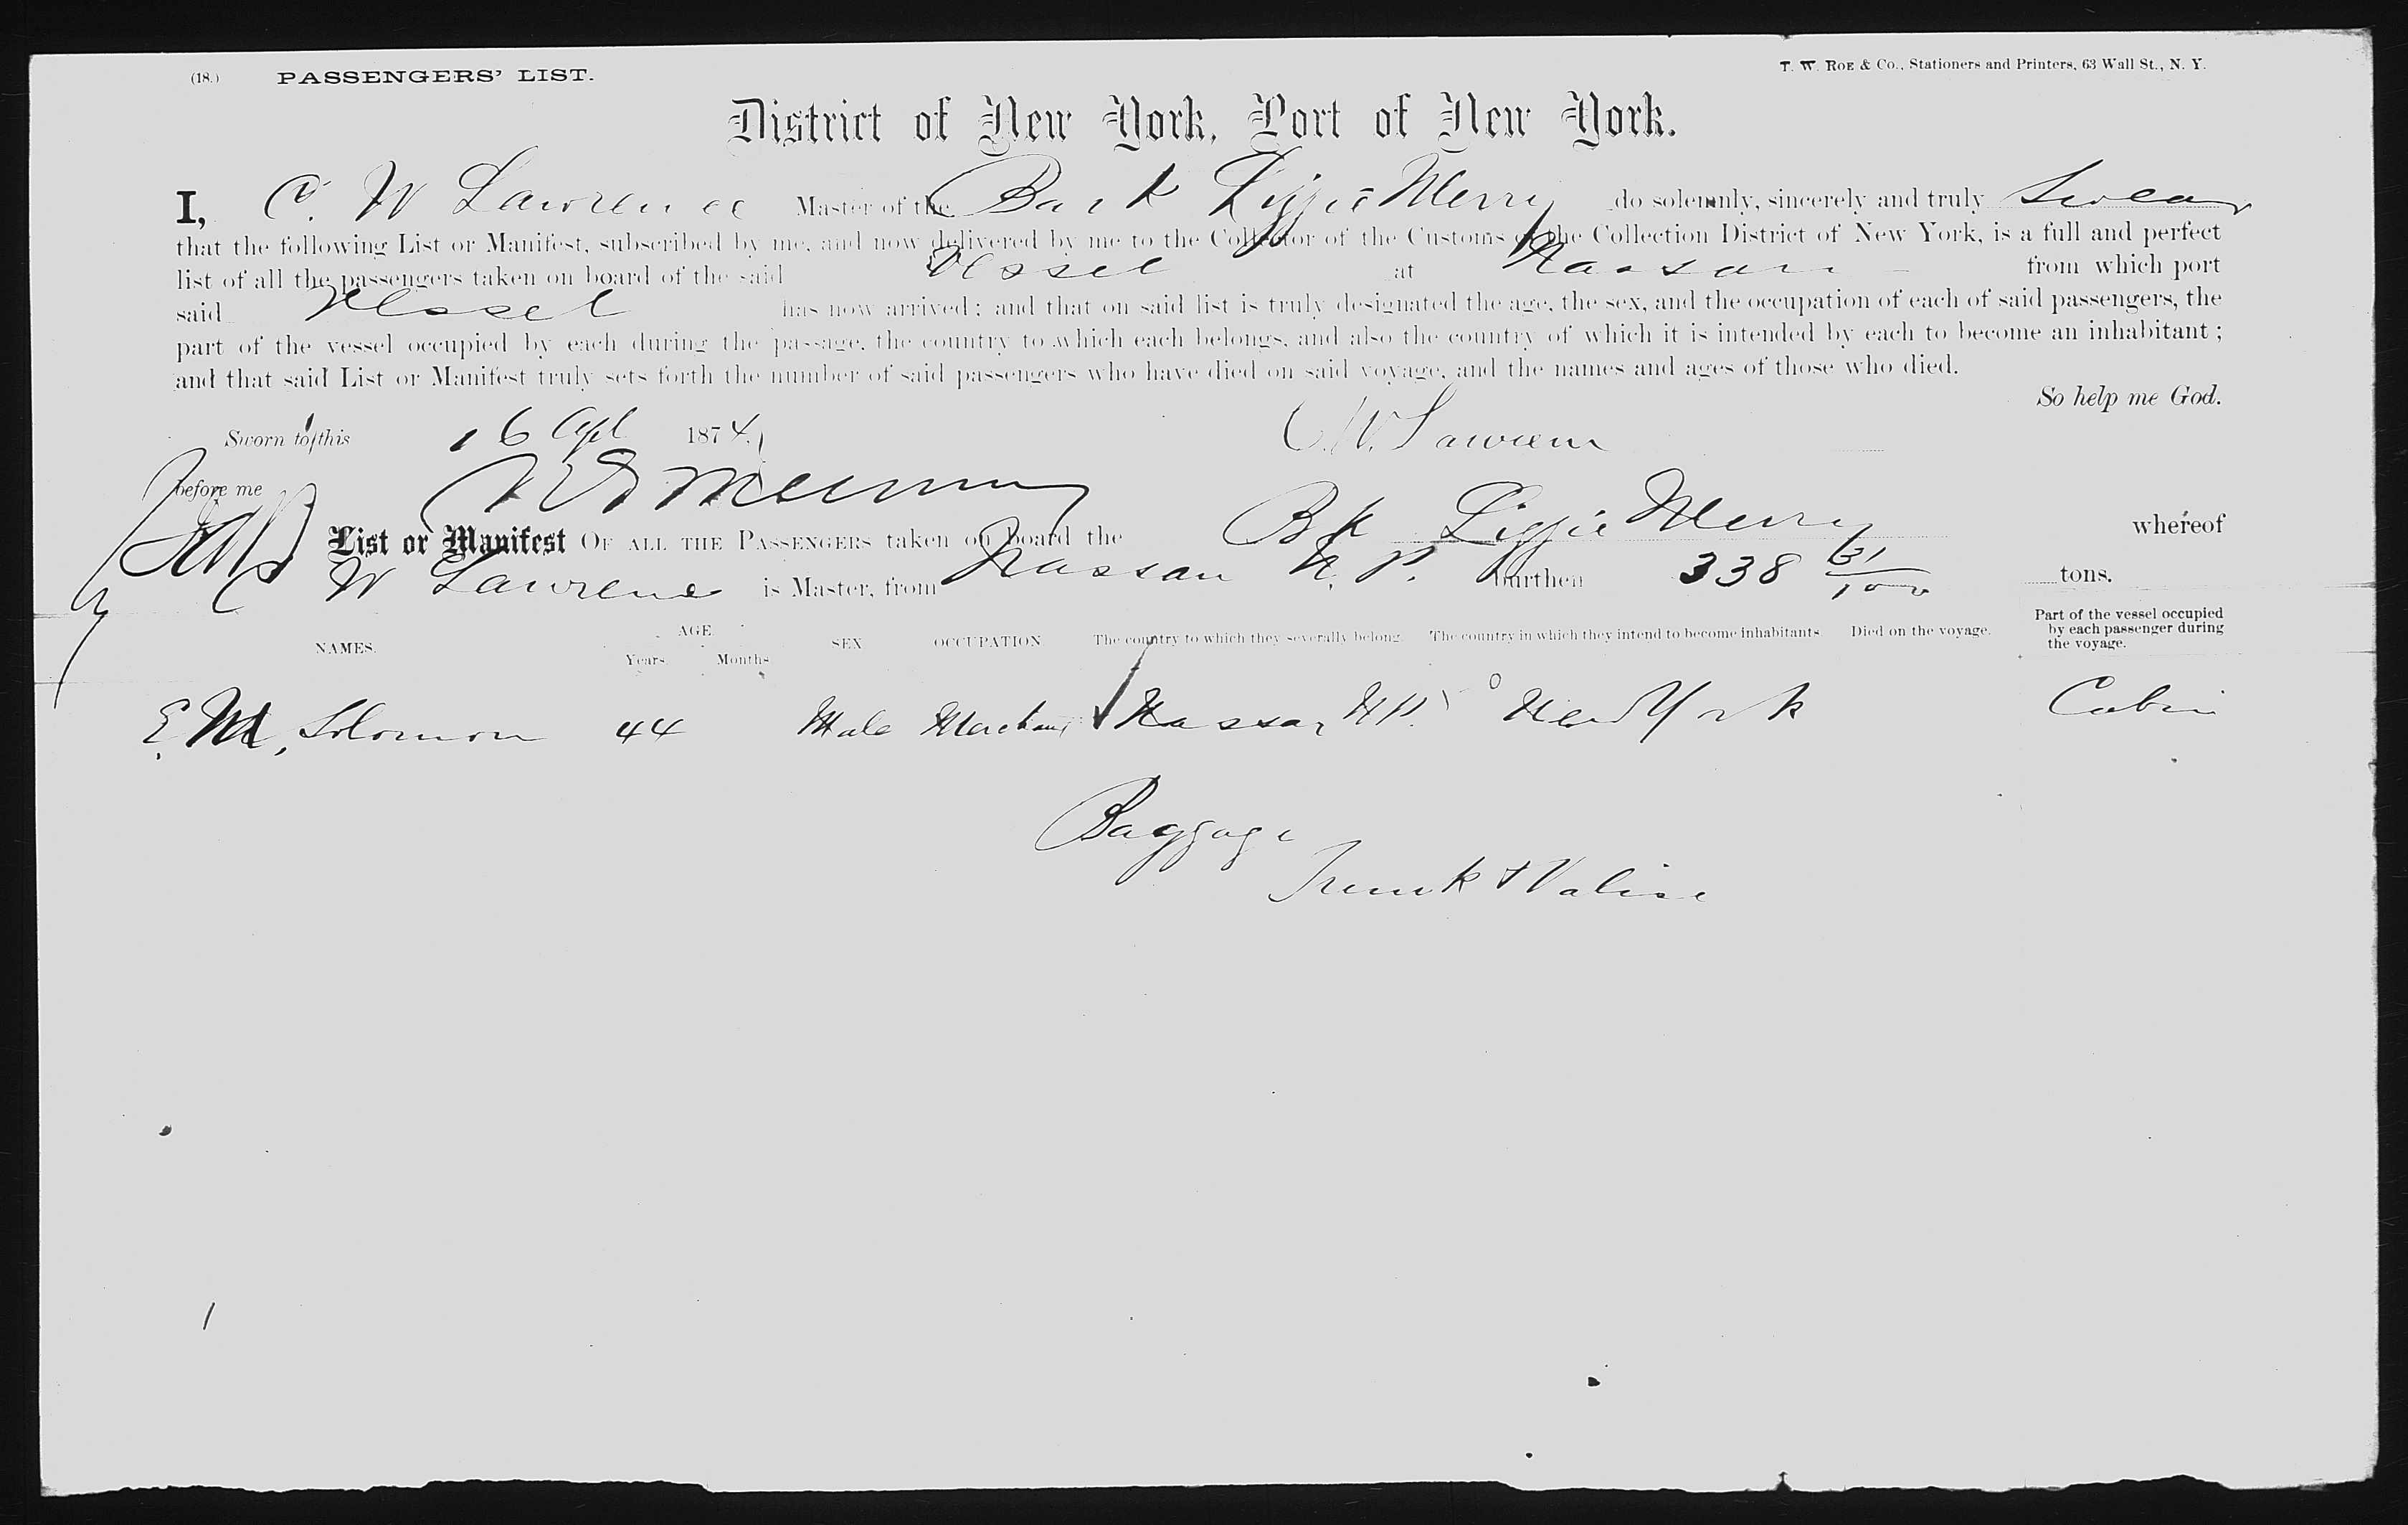 (18.) PASSENGERS' LIST.
T. W. ROE & Co., Stationers and Printers, 63 Wall St., N. Y.
District of New York, Port of New York.
I, C. W Lawrence Master of the Bark Lizzie Merry do solemnly, sincerely and truly Swear
that the following List or Manifest, subscribed by me, and now delivered by me to the Collector of the Customs of the Collection District of New York, is a full and perfect
list of all the passengers taken on board of the said Vessel at Nassau from which port
said Vessel has now arrived; and that on said list is truly designated the age, the sex, and the occupation of each of said passengers, the
part of the vessel occupied by each during the passage, the country to which each belongs, and also the country of which it is intended by each to become an inhabitant;
and that said List or Manifest truly sets forth the number of said passengers who have died on said voyage, and the names and ages of those who died.
So help me God.
Sworn to this 16 Apl 1874. C. W. Lawrence
before me
List or Manifest OF ALL THE PASSENGERS taken on board the Bk Lizzie Merry whereof
C W Lawrence is Master, from Nassau N. P. burthen 338 31/100 tons.
NAMES. AGE. Years. Months. SEX OCCUPATION The country to which they severally belong. The country in which they intend to become inhabitants. Died on the voyage. Part of the vessel occupied by each passenger during the voyage.
E. M. Solomon 44 Male Merchant Nassau N P. New York Cabin
Baggage
Trunk & Valise
1